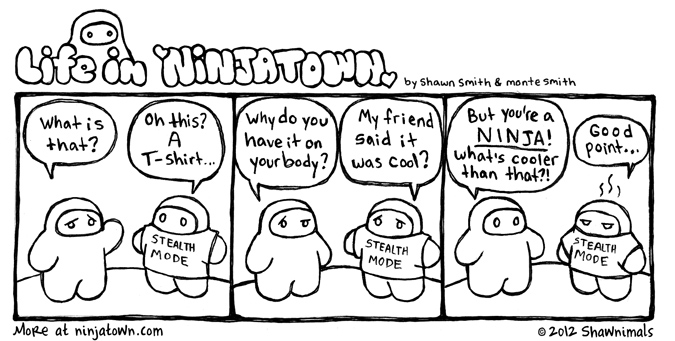 Life in NINJATOWN.
by Shawn Smith & monte smith
What is
that?
Oh this?
A
T-shirt...
STEALTH
MODE
Why do you
have it on
your body?
My friend
said it
was cool?
STEALTH
MODE
But you're a
NINJA!
What's cooler
than that?!
Good
point...
STEALTH
MODE
More at ninjatown.com
© 2012 Shawnimals